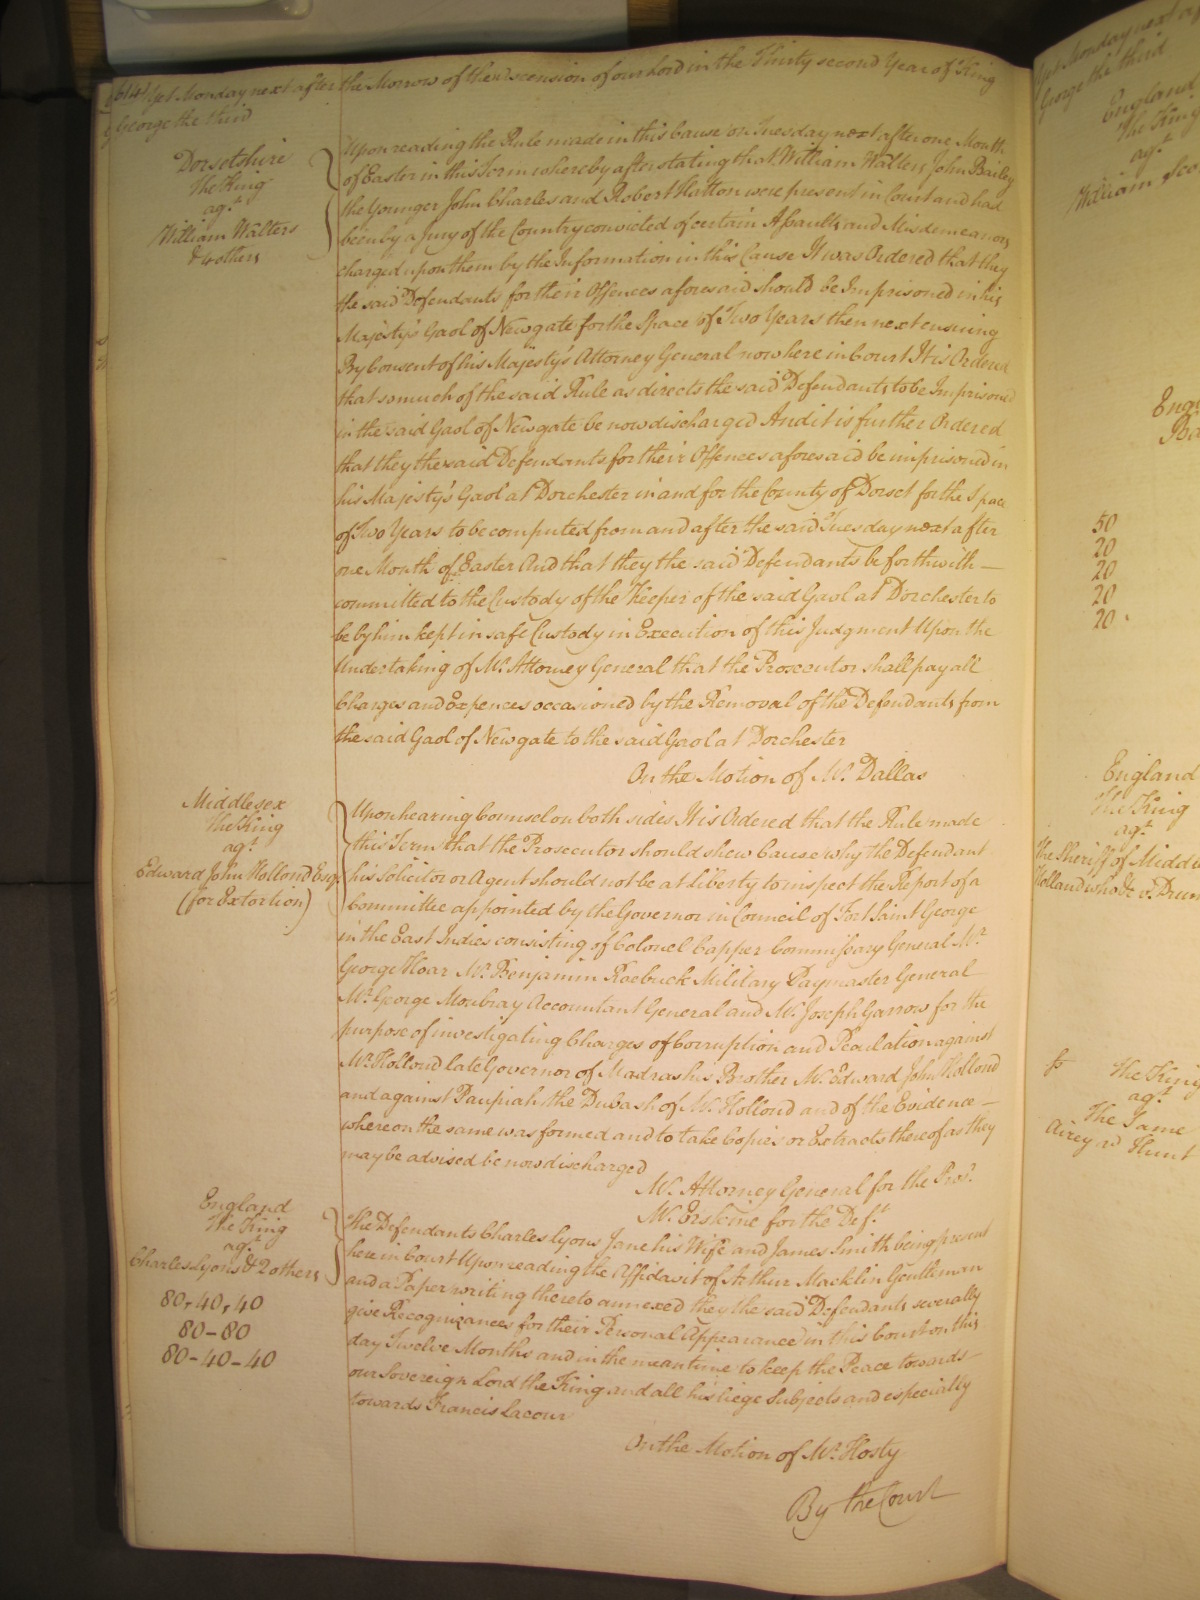 614 Yet Monday next after the Morrow of the Ascension of our Lord in the Thirty second Year of King
George the third
Dorsetshire
The King
agt
William Walters
& 4 others
Upon reading the Rule made in this Cause on Tuesday next after one Month
of Easter in this Term whereby after stating that William Walters John Bailey
the Younger John Charles and Robert Hatton were present in Court and had
been by a Jury of the Country convicted of certain Assaults and Misdemeanors
charged upon them by the Information in this Cause It was Ordered that they
the said Defendants for their Offences aforesaid should be Imprisoned in his
Majesty's Gaol of Newgate for the Space of Two Years then next ensuing
By Consent of his Majesty's Attorney General now here in Court It is Ordered
that so much of the said Rule as directs the said Defendants to be Imprisoned
in the said Gaol of Newgate be now discharged And it is further Ordered
that they the said Defendants for their Offences aforesaid be imprisoned in
his Majesty's Gaol at Dorchester in and for the County of Dorset for the Space
of Two Years to be computed from and after the said Tuesday next after
one Month of Easter And that they the said Defendants be forthwith —
committed to the Custody of the Keeper of the said Gaol at Dorchester to
be by him kept in safe Custody in Execution of this Judgment Upon the
Undertaking of Mr. Attorney General that the Prosecutor shall pay all
Charges and Expences occasioned by the Removal of the Defendants from
the said Gaol of Newgate to the said Gaol at Dorchester
On the Motion of Mr. Dallas
Middlesex
The King
agt
Edward John Hollond Esqr
(for Extortion)
Upon hearing Counsel on both sides It is Ordered that the Rule made
this Term that the Prosecutor should shew Cause why the Defendant
his Solicitor or Agent should not be at Liberty to inspect the Report of a
Committee appointed by the Governor in Council of Fort Saint George
in the East Indies consisting of Colonel Capper Commissary General Mr.
George Hoar Mr. Benjamin Roebuck Military Paymaster General
Mr. George Moubray Accountant General and Mr. Joseph Garrow for the
purpose of investigating Charges of Corruption and Peculation against
Mr. Hollond late Governor of Madras his Brother Mr. Edward John Hollond
and against Paupiah the Dubash of Mr. Hollond and of the Evidence —
whereon the same was formed and to take Copies or Extracts thereof as they
may be advised be now discharged
Mr. Attorney General for the Pros.
Mr. Erskine for the Deft.
England
The King
agt
Charles Lyons & 2 others
80, 40, 40
80 – 80
80 – 40 – 40
The Defendants Charles Lyons Jane his Wife and James Smith being present
here in Court Upon reading the Affidavit of Arthur Macklin Gentleman
and a Paper writing thereto annexed they the said Defendants severally
give Recognizances for their Personal Appearance in this Court on this
day Twelve Months and in the mean time to keep the Peace towards —
our Sovereign Lord the King and all his liege Subjects and especially
towards Francis Lacour
On the Motion of Mr. Hosty
By the Court
Yet Monday next
George the third
England
The King
agt
William
50
20
20
20
20
England
The King
agt
The Sheriff of Midd
The King
agt
The Same
Airey ad Hunt